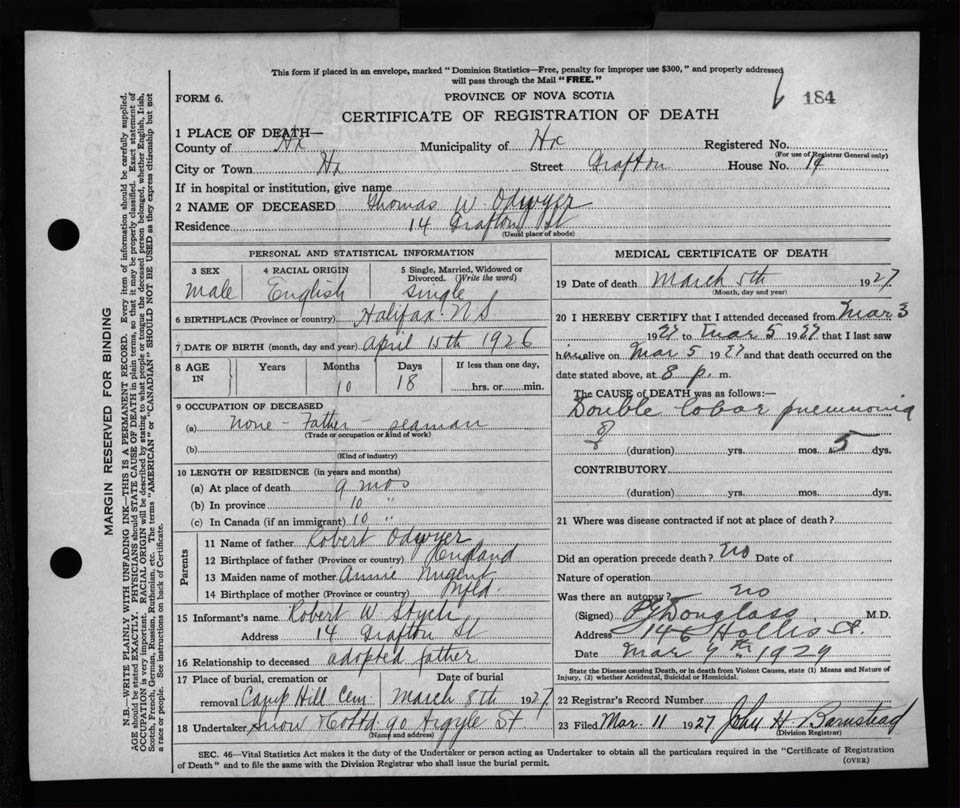 This form if placed in an envelope, marked "Dominion Statistics—Free, penalty for improper use $300," and properly addressed
will pass through the Mail "FREE."
FORM 6.
PROVINCE OF NOVA SCOTIA
184
CERTIFICATE OF REGISTRATION OF DEATH
1 PLACE OF DEATH—
County of Hx Municipality of Hx Registered No.
(For use of Registrar General only)
City or Town Hx Street Grafton House No. 14
If in hospital or institution, give name
2 NAME OF DECEASED Thomas W. Odwyer
Residence 14 Grafton St
(Usual place of abode)
PERSONAL AND STATISTICAL INFORMATION
3 SEX
Male
4 RACIAL ORIGIN
English
5 Single, Married, Widowed or
Divorced. (Write the word)
Single
6 BIRTHPLACE (Province or country) Halifax N S
7 DATE OF BIRTH (month, day and year) April 15th 1926
8 AGE
IN
Years
Months
10
Days
18
If less than one day,
hrs. or min.
9 OCCUPATION OF DECEASED
(a) None - Father - seaman
(Trade or occupation or kind of work)
(b)
(Kind of industry)
10 LENGTH OF RESIDENCE (in years and months)
(a) At place of death 9 mos
(b) In province 10 "
(c) In Canada (if an immigrant) 10 "
Parents
11 Name of father Robert Odwyer
12 Birthplace of father (Province or country) England
13 Maiden name of mother Annie Nugent
14 Birthplace of mother (Province or country) Nfld.
15 Informant's name Robert W. Stych
Address 14 Grafton St
16 Relationship to deceased adopted father
17 Place of burial, cremation or
removal Camp Hill Cem.
Date of burial
March 8th 1927
18 Undertaker Snow & Co Ltd 90 Argyle St
(Name and address)
MEDICAL CERTIFICATE OF DEATH
19 Date of death March 5th 1927
(Month, day and year)
20 I HEREBY CERTIFY that I attended deceased from Mar 3
1927 to Mar 5 1927 that I last saw
him alive on Mar 5 1927 and that death occurred on the
date stated above, at 8 p. m.
The CAUSE OF DEATH was as follows:—
Double lobar pneumonia
(duration) yrs. mos. 5 dys.
CONTRIBUTORY
(duration) yrs. mos. dys.
21 Where was disease contracted if not at place of death?
Did an operation precede death? no Date of
Nature of operation
Was there an autopsy? no
(Signed) Douglass M.D.
Address 146 Hollis St.
Date Mar 7th 1927
State the Disease causing Death, or in death from Violent Causes, state (1) Means and Nature of
Injury, (2) whether Accidental, Suicidal or Homicidal.
22 Registrar's Record Number
23 Filed Mar. 11 1927 John H Barnstead
(Division Registrar)
SEC. 46—Vital Statistics Act makes it the duty of the Undertaker or person acting as Undertaker to obtain all the particulars required in the "Certificate of Registration
of Death" and to file the same with the Division Registrar who shall issue the burial permit.
(OVER)
MARGIN RESERVED FOR BINDING
N.B.—WRITE PLAINLY WITH UNFADING INK—THIS IS A PERMANENT RECORD. Every item of information should be carefully supplied.
AGE should be stated EXACTLY. PHYSICIANS should STATE CAUSE OF DEATH in plain terms, so that it may be properly classified. Exact statement of
OCCUPATION is very important. RACIAL ORIGIN will be described by stating to what people or tongue the deceased person belonged, whether English, Irish,
Scotch, French, German, Russian, Ruthenian, etc. The terms "AMERICAN" or "CANADIAN" SHOULD NOT BE USED as they express citizenship but not
a race or people. See instructions on back of Certificate.